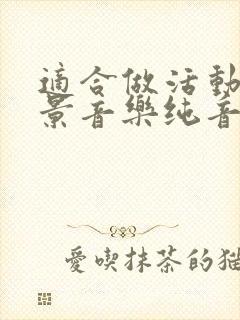 適合做活動
景音樂纯音
愛喫抹茶的猫